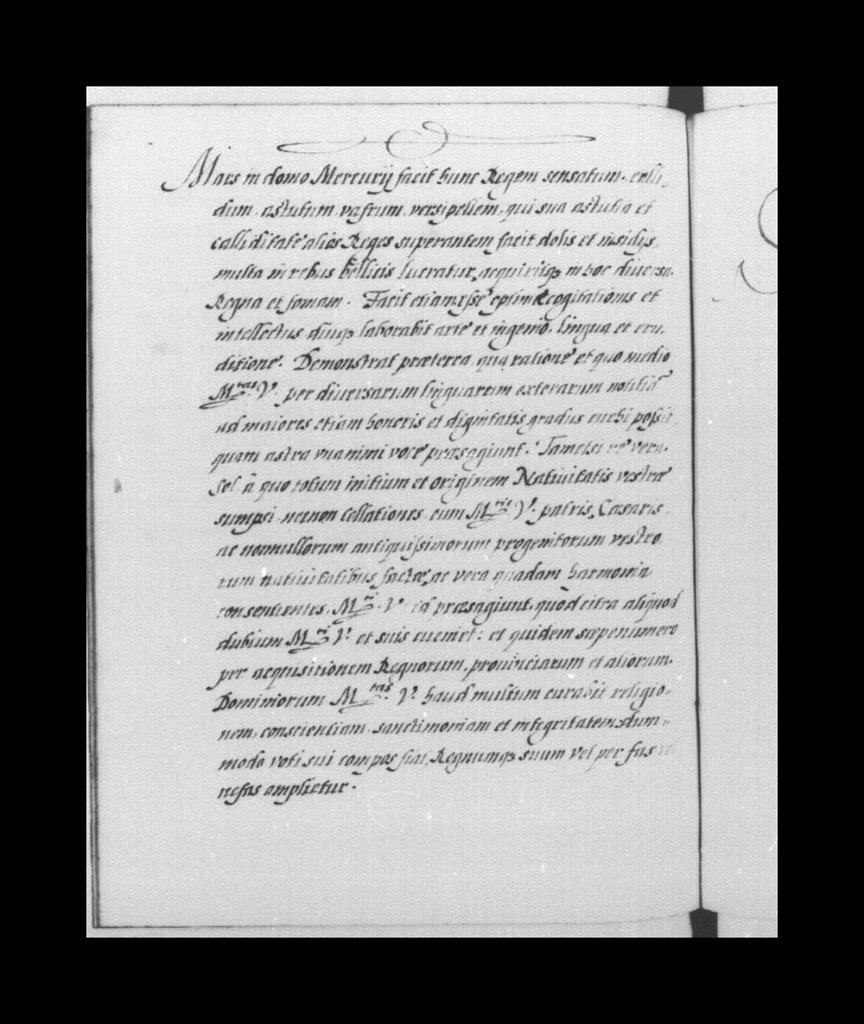 Mars in domo Mercurij facit hunc Regem sensatum, calli,,
dum, astutum, vafrum, versipellem, qui sua astutia et
calliditate alios Reges superantem facit dolis et insidijs,
multa in rebus bellicis lucratur, acquiritq; in hoc diversa
Regna et famam. Facit etiam esse optimae cogitationis et
intellectus, diuq; laborabit arte et ingenio, lingua et eru,,
ditione. Demonstrat praeterea, qua ratione et quo medio
M.tas V. per diversarum linguarum exterarum notitia
ad maiores etiam honoris et dignitatis gradus euehi possit,
quam astra unanimi voce praesagiunt. Tametsi re vera
Sol, à quo totum initium et originem Nativitatis vestrae
sumpsi, necnon Collationes, cum M.tis V. patris, Caesaris,
ac nonnullorum antiquissimorum progenitorum vestro,,
rum nativitatibus factae, ac vera quadam harmonia
consentientes, M.ti V. id praesagiunt, quod citra aliquod
dubium M.ti V. et suis eueniet: et quidem saepenumero
per acquisitionem Regnorum, provinciarum et aliorum
Dominiorum M.tas V. haud multum curabit religio,,
nem, conscientiam, sanctimoniam et integritatem, dum,,
modo voti sui compos fiat, Regnumq; suum vel per fas vel
nefas amplietur.